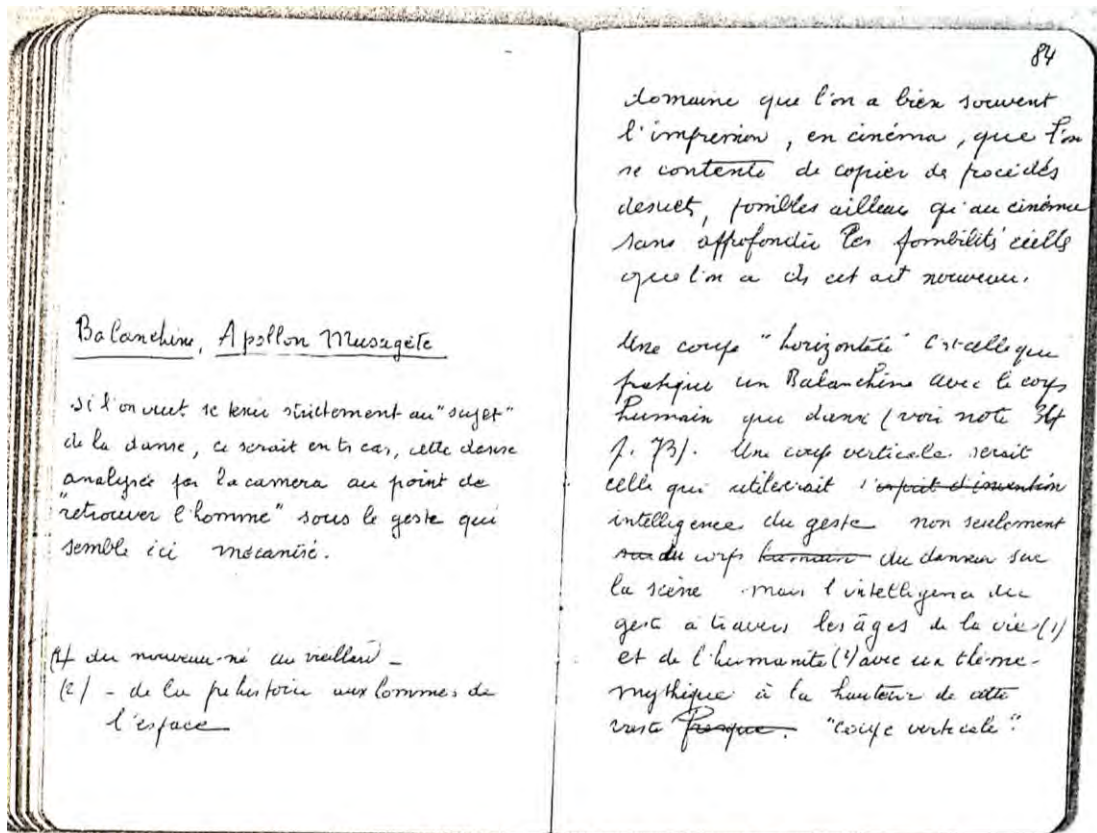 Balanchine, Apollon Musagète
si l'on veut se tenir strictement au "sujet"
de la danse, ce serait en ts cas, cette danse
analysée par la camera au point de
"retrouver l'homme" sous le geste qui
semble ici mécanisé.
(1) du nouveau-né au vieillard -
(2) - de la préhistoire aux hommes de
l'espace
84
domaine que l'on a bien souvent
l'impression, en cinéma, que l'on
se contente de copier de procédés
desuets, possibles ailleurs qu'au cinéma
sans approfondir les possibilités
que l'on a ds cet art nouveau.
Une coupe "horizontale" c'est celle que
pratique un Balanchine avec le corps
humain qui danse (voir note 34
p. 73). Une coupe verticale serait
celle qui utiliserait l'esprit d'invention
intelligence du geste non seulement
du corps humain du danseur sur
la scène mais l'intelligence du
geste à travers les âges de la vie (1)
et de l'humanité (2) avec un thème
mythique à la hauteur de cette
vaste fresque. "coupe verticale".